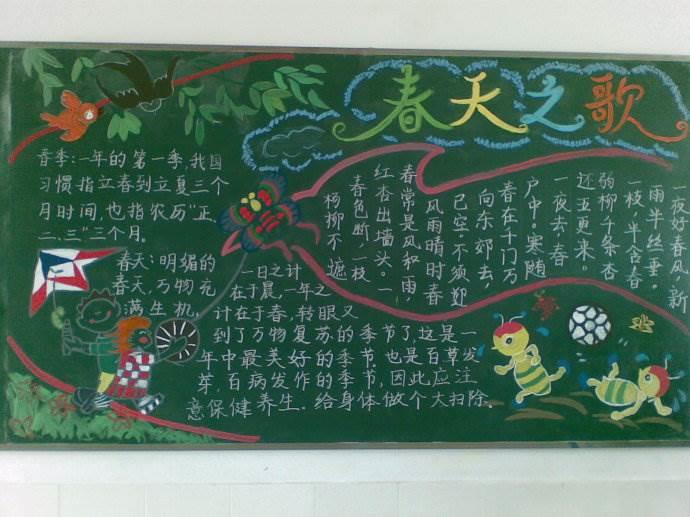 春天之歌
春季:一年的第一季,我国
习惯指立春到立夏三个
月时间,也指农历"正、
二、三"三个月。
春天:明媚的
春天,万物充
满生机,
一日之计
在于晨,一年之
计在于春,转眼又
到了万物复苏的季节了,这是一
年中最美好的季节.也是百草发
芽,百病发作的季节,因此应注
意保健养生。给身体做个大扫除。
一夜好春风,新
雨半丝垂。
一枝,半含春
弱柳千条杏
还五更来"
一夜去,春
户中。寒随
春在千门万
向东郊去,
已空,不须迎
风雨晴时春
春常是风和雨,
红杏出墙头。一
春色断,一枝
杨柳不遮